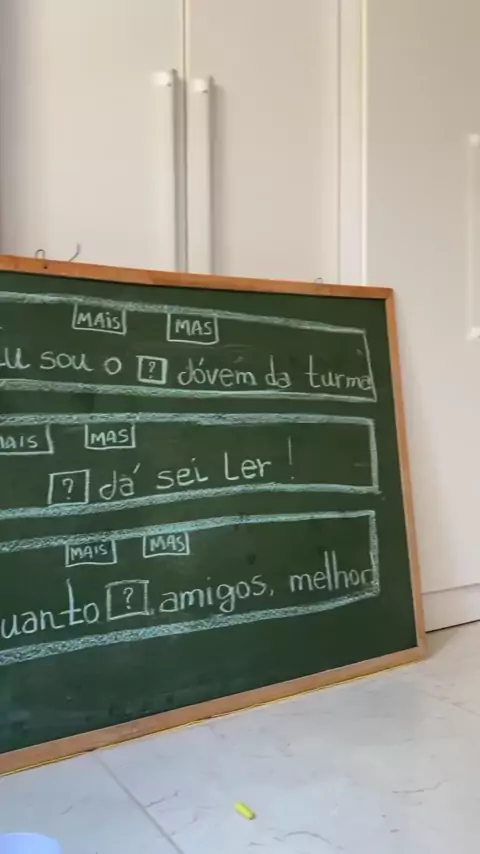 MAiS MAS
Eu sou o ? jóvem da turma
MAIS MAS
? já sei Ler!
MAIS MAS
uanto ? amigos, melhor